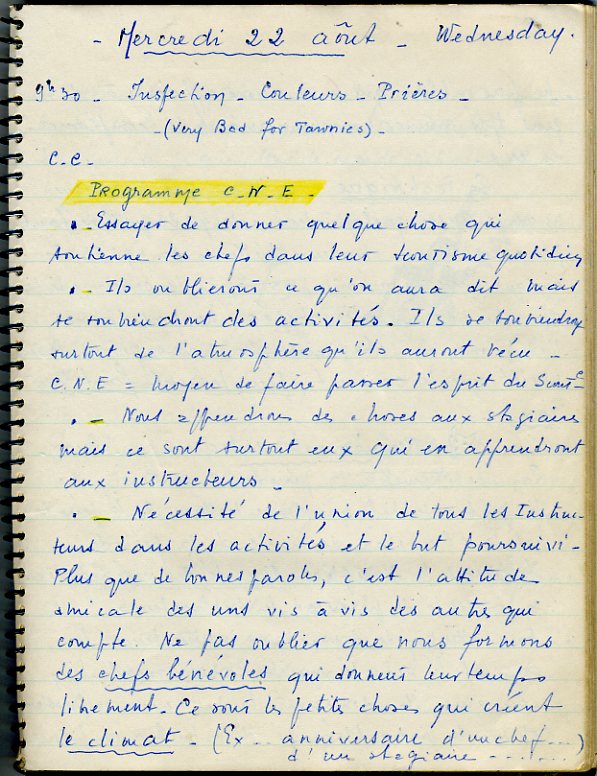 - Mercredi 22 août - Wednesday.
9h30 - Inspection - Couleurs - Prières -
- (Very Bad for Tawnies) -
C.C -
Programme C-N-E -
• - Essayer de donner quelque chose qui
soutienne les chefs dans leur scoutisme quotidien
• - Ils oublieront ce qu'on aura dit mais
se souviendront des activités. Ils se souviendront
surtout de l'atmosphère qu'ils auront vécu -
C.N.E = moyen de faire passer l'esprit du Scout.
• - Nous apprendrons des choses aux stagiaires
mais ce sont surtout eux qui en apprendront
aux instructeurs -
• - Nécessité de l'union de tous les Instruc-
teurs dans les activités et le but poursuivi -
Plus que de bonnes paroles, c'est l'attitude
amicale des uns vis à vis des autres qui
compte. Ne pas oublier que nous formons
des chefs bénévoles qui donnent leur temps
librement. Ce sont les petites choses qui créent
le climat - (Ex... anniversaire d'un chef...)
d'un stagiaire .......